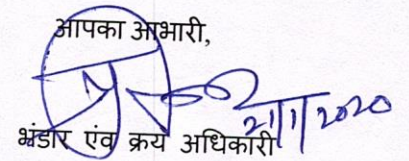 आपका आभारी,
21/1/2020
भंडार एंव क्रय अधिकारी